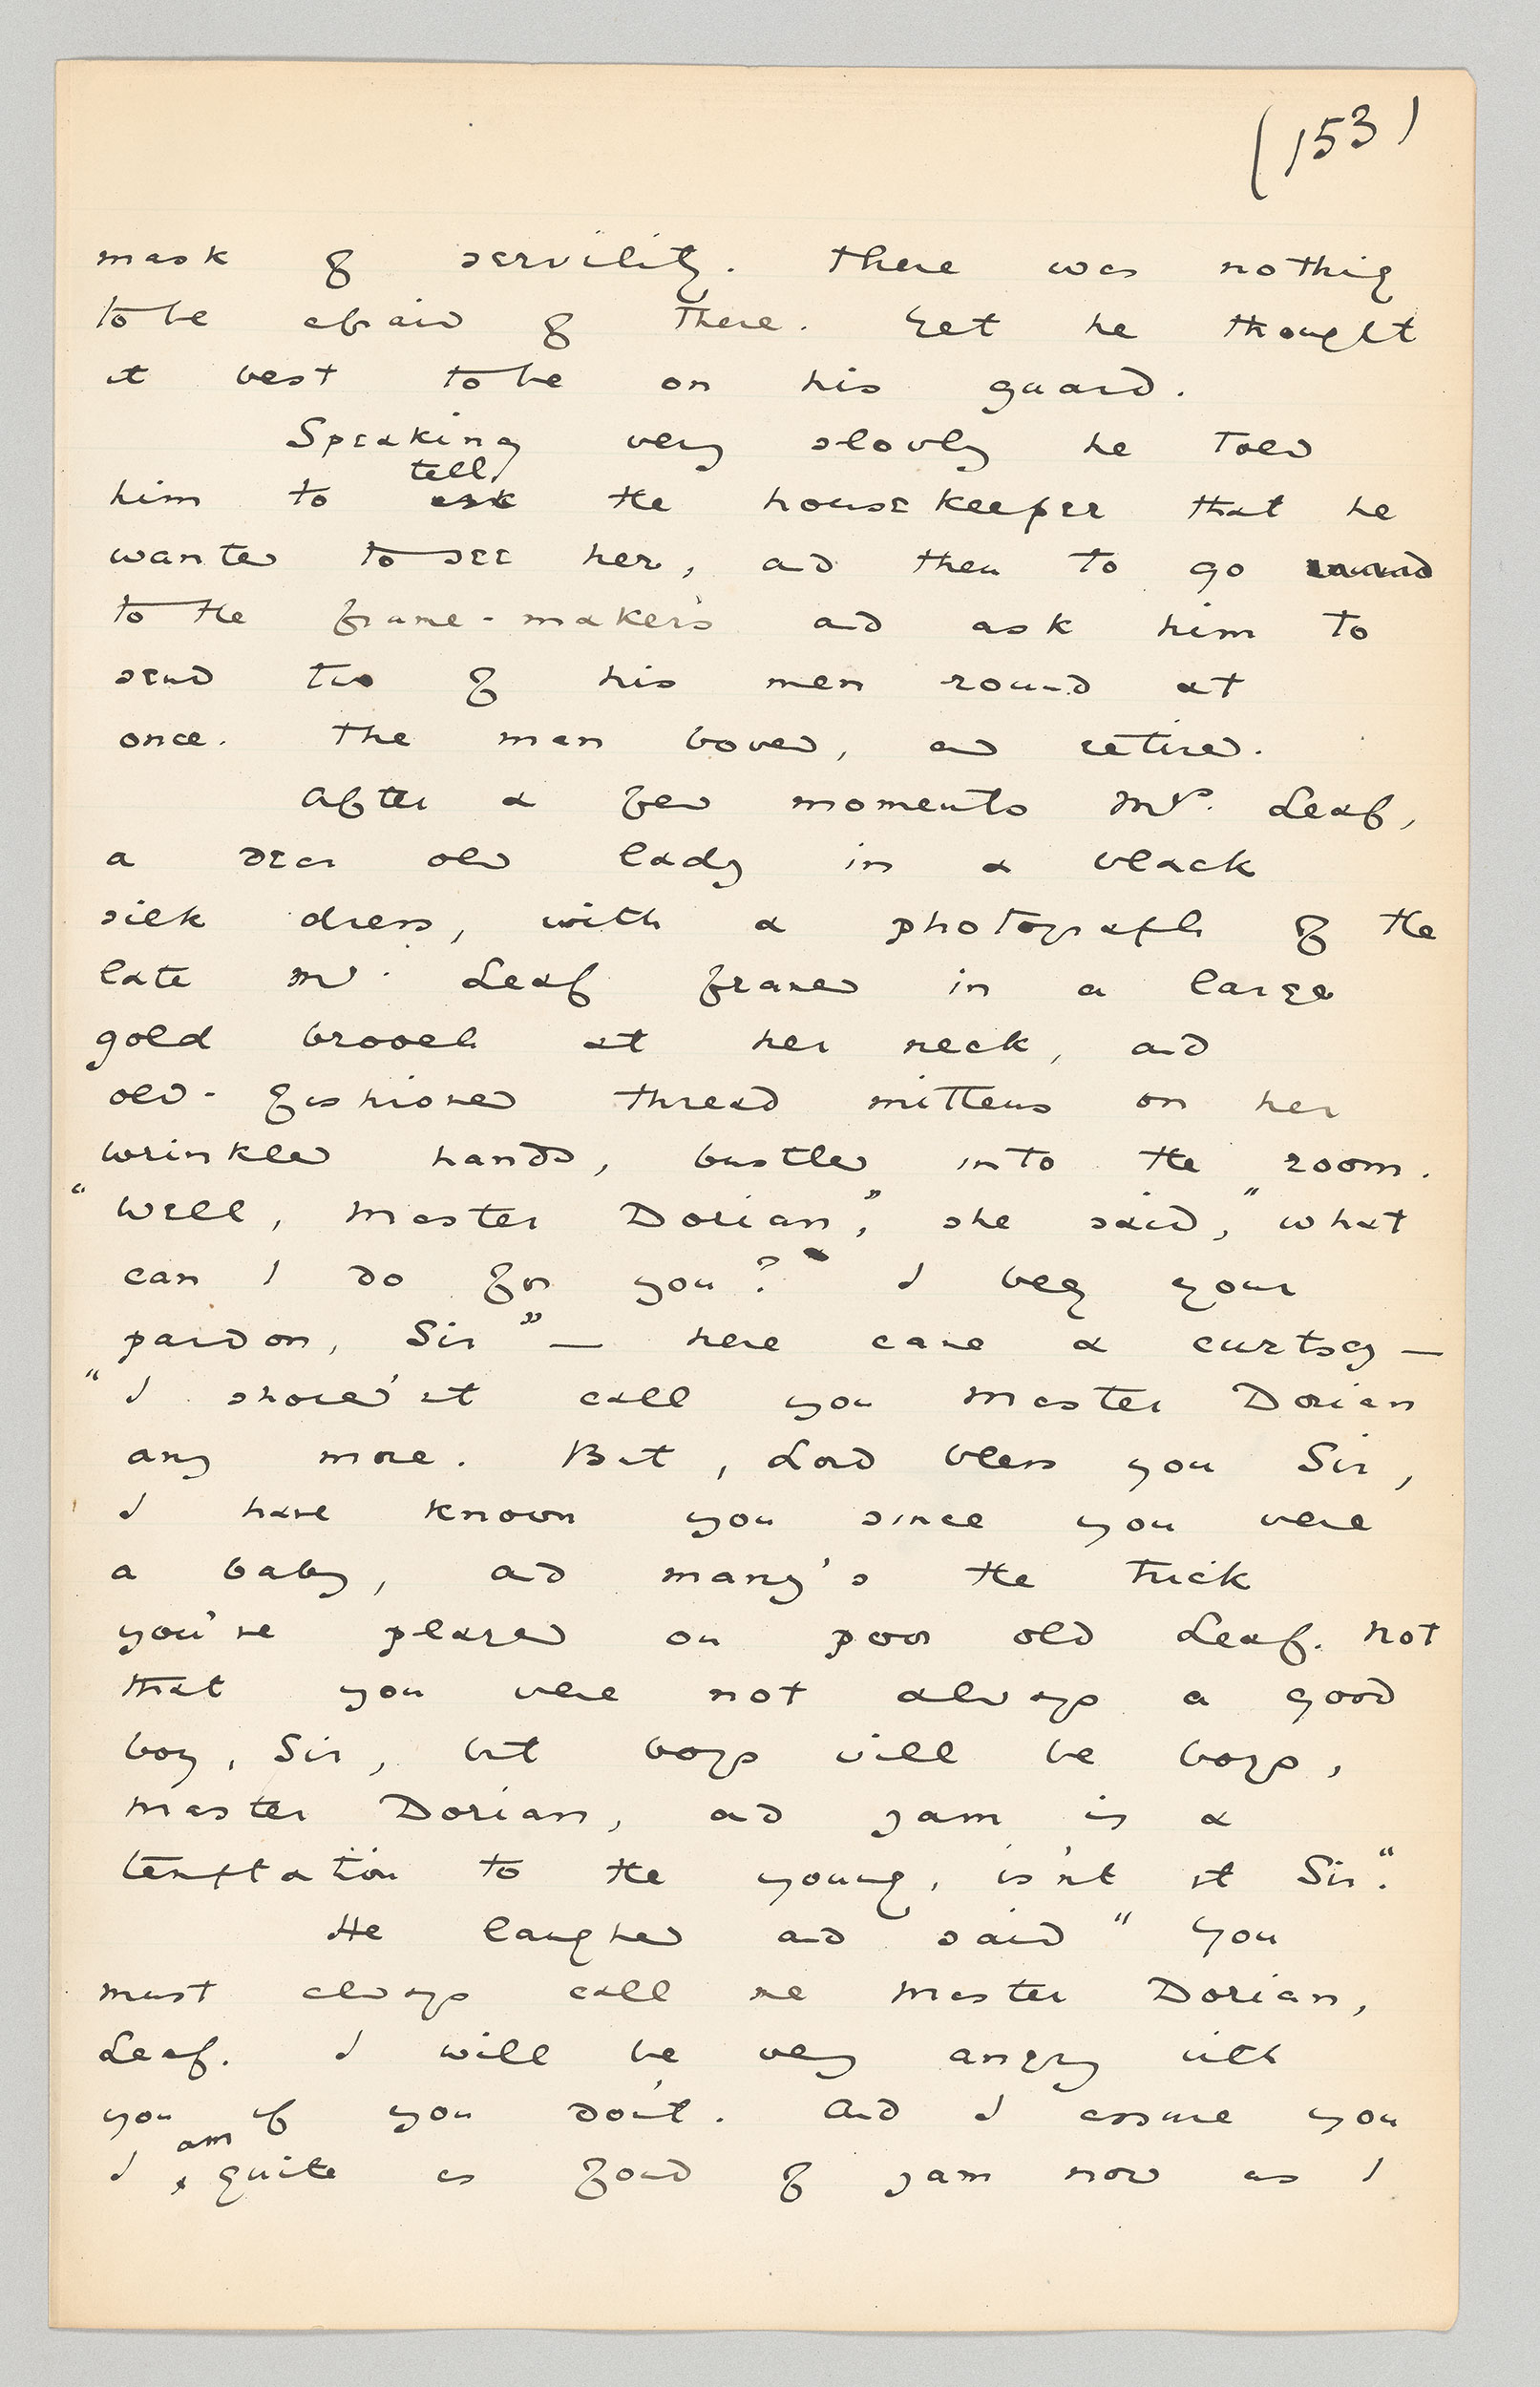 (153)
mask of servility. There was nothing
to be afraid of there. Yet he thought
it best to be on his guard.
Speaking very slowly he told
tell
him to ask the housekeeper that he
wanted to see her, and then to go round
to the frame-maker's and ask him to
send two of his men round at
once. The man bowed, and retired.
After a few moments Mrs. Leaf,
a dear old lady in a black
silk dress, with a photograph of the
late Mr. Leaf framed in a large
gold brooch at her neck, and
old-fashioned thread mittens on her
wrinkled hands, bustled into the room.
"Well, Master Dorian," she said, "what
can I do for you? I beg your
pardon, Sir" — here came a curtsey —
"I should'nt call you Master Dorian
any more. But, Lord bless you Sir,
I have known you since you were
a baby, and many's the trick
you've played on poor old Leaf. Not
that you were not always a good
boy, Sir, but boys will be boys,
Master Dorian, and jam is a
temptation to the young, is'nt it Sir."
He laughed and said "You
must always call me Master Dorian,
Leaf. I will be very angry with
you if you don't. And I assure you
am
I ‸ quite as fond of jam now as I